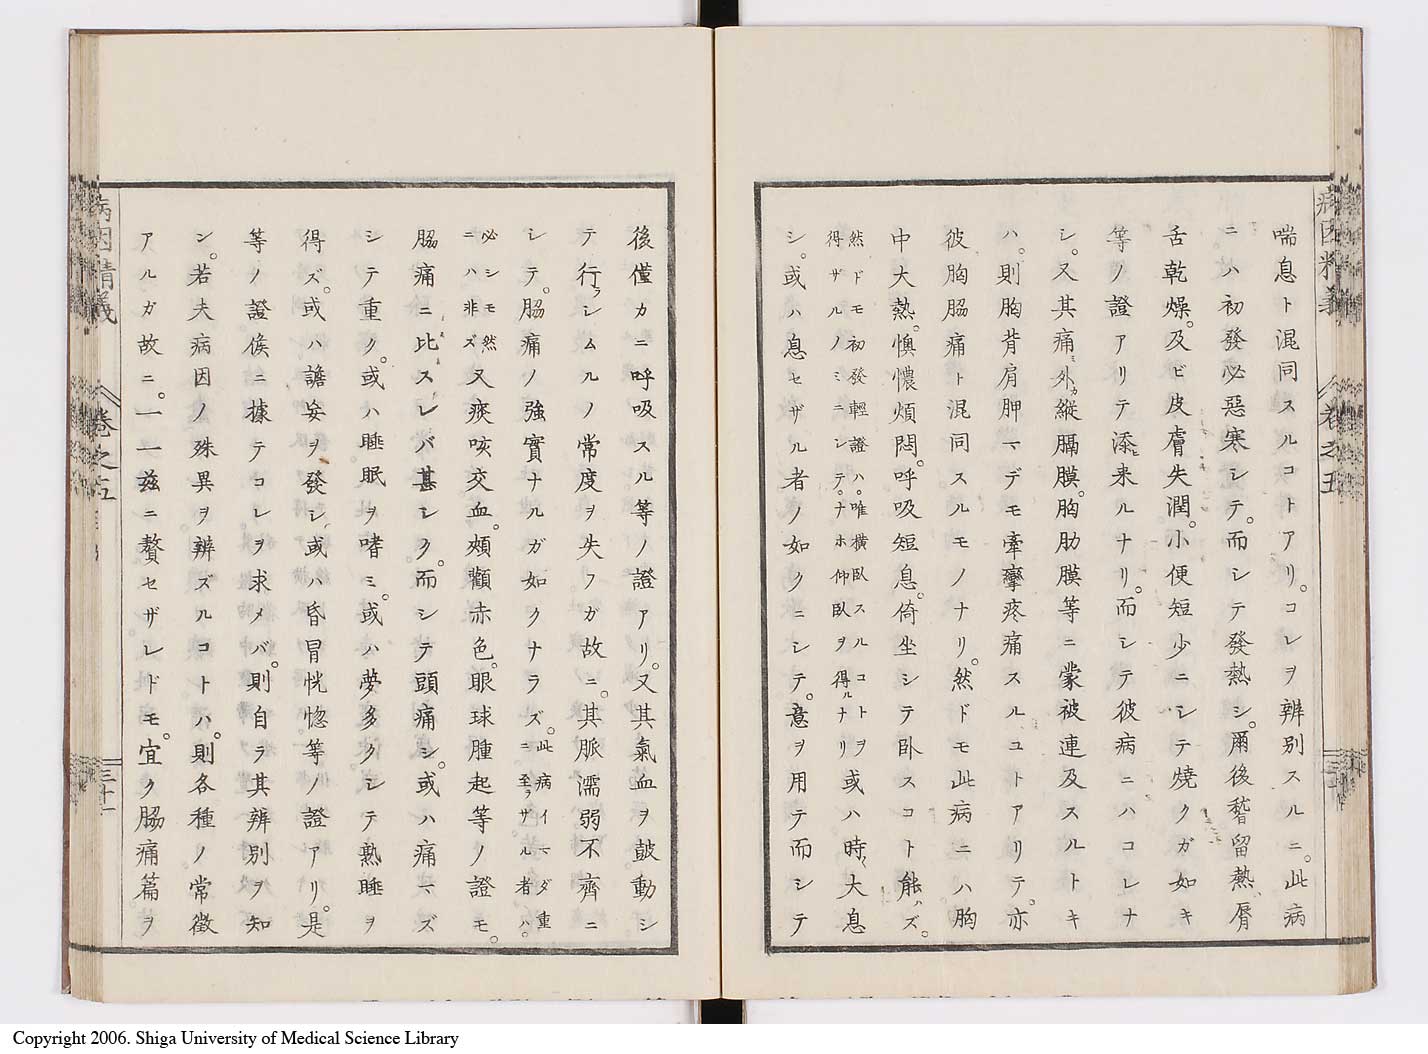 喘息ト混同スルコトアリ。コレヲ辨別スルニ。此病
ニハ初發必惡寒シテ。而シテ發熱シ。爾後稽留熱。脣
舌乾燥。及ビ皮膚失潤。小便短少ニシテ燒クガ如キ
等ノ證アリテ添来ルナリ。而シテ彼病ニハコレナ
シ。又其痛外縱膈膜。胸肋膜等ニ蒙被連及スルトキ
ハ。則胸背肩胛マデモ牽攣疼痛スルコトアリテ。亦
彼胸脇痛ト混同スルモノナリ。然ドモ此病ニハ胸
中大熱。懊憹煩悶。呼吸短息。倚坐シテ卧スコト能ハズ。
然ドモ初發輕證ハ。唯横臥スルコトヲ
得ザルノミニシテ。ナホ仰臥ヲ得ルナリ
或ハ時々大息
シ。或ハ息セザル者ノ如クニシテ。意ヲ用テ而シテ
病因精義
卷之五
三十
後僅カニ呼吸スル等ノ證アリ。又其氣血ヲ鼓動シ
テ行ラシムルノ常度ヲ失フガ故ニ。其脈濡弱不齊ニ
シテ。脇痛ノ強實ナルガ如クナラズ。
此病イマダ重
ニ至ラザル者ハ。
必シモ然
ニハ非ズ
又痰咳交血。頰顴赤色。眼球腫起等ノ證モ。
脇痛ニ比スレバ甚シク。而シテ頭痛シ。或ハ痛マズ
シテ重ク。或ハ睡眠ヲ嗜ミ。或ハ夢多クシテ熟睡ヲ
得ズ。或ハ譫妄ヲ發シ或ハ昏冒恍惚等ノ證アリ。是
等ノ證候ニ據テコレヲ求メバ。則自ラ其辨別ヲ知
ン。若夫病因ノ殊異ヲ辨ズルコトハ。則各種ノ常徴
アルガ故ニ。一一茲ニ贅セザレドモ。宜ク脇痛篇ヲ
病因精義
卷之五
三十一
Copyright 2006. Shiga University of Medical Science Library